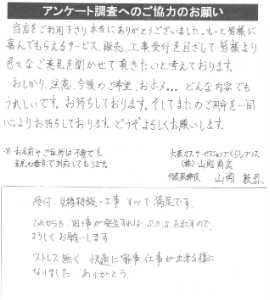 アンケート調査へのご協力のお願い
当店をご利用下さり本当にありがとうございました。もっと皆様に
喜んでもらえるサービス、販売、工事受付を目ざして皆様より
色々なご意見を聞かせて頂きたいと考えております。
おしかり、注意、今後のご希望、おホメ... どんな内容でも
うれしいです。お待ちしております。そしてまたのご用命を一同
心よりお待ちしております。どうぞよろしくお願いします。
※お名前やご住所は不要でも
大阪ガスサービスショップ
(株)山岡商会
代表取締役 山岡
受付、見積、工事 すべて満足です。
これからも
よろしくお願いします
ストレス無く 快適に家事仕事が出来る様に
なりました ありがとう